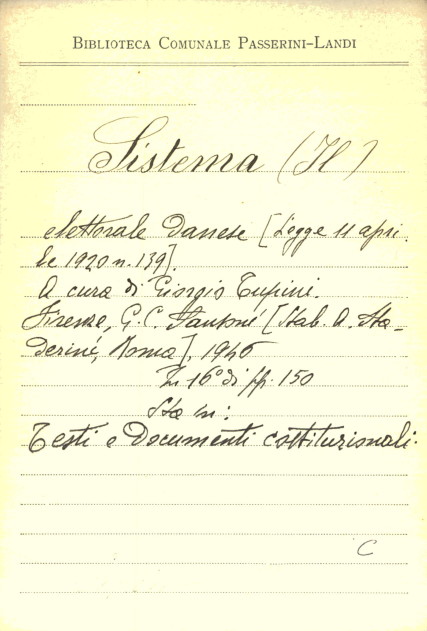 BIBLIOTECA COMUNALE PASSERINI-LANDI
Sistema (Il)
elettorale danese [Legge 11 apri
le 1920 n. 139].
A cura di Giorgio Tupini.
Firenze, G. C. Sansoni [Stab. A. Sta-
derini, Roma], 1946
In 16° di pp. 150
Sta in:
Testi e Documenti costituzionali.
C